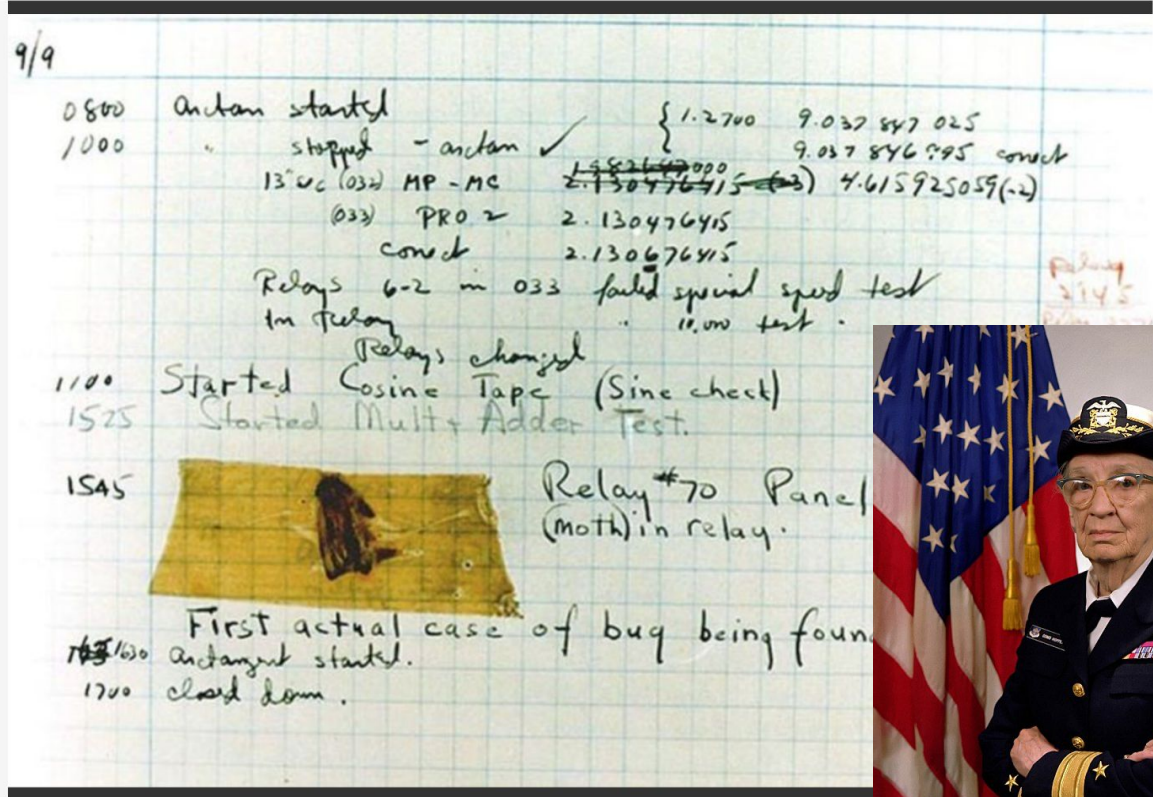 9/9
0800 arctan started
{ 1.2700 9.037 847 025
1000 " stopped - arctan ✓ 9.037 846 995 correct
13"uc (032) MP - MC 2.130476415 (-3) 4.615925059(-2)
(033) PRO 2 2.130476415
correct 2.130676415
Relays 6-2 in 033 failed special speed test
In Relay " 10,000 test .
Relay
2145
Relays changed
1100 Started Cosine Tape (Sine check)
1525 Started Mult+ Adder Test.
1545 Relay #70 Panel
(moth) in relay.
First actual case of bug being foun
1630 arctangent started.
1700 closed down.